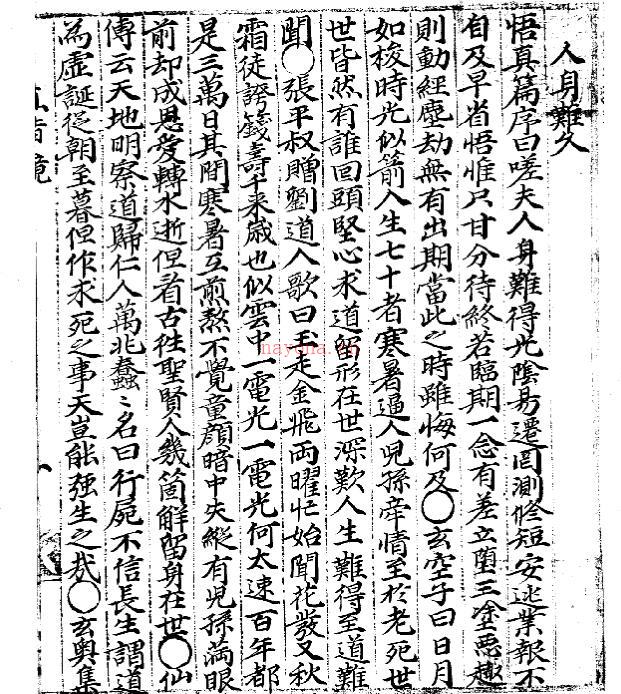 人身難久
悟真篇序曰嗟夫人身難得光陰易遷罔測脩短安逃業報不
自及早省悟惟只甘分待終若臨期一念有差立墮三塗惡趣
則動經塵劫無有出期當此之時雖悔何及○玄空子曰日月
如梭時光似箭人生七十者寒暑逼人兒孫牽情至於老死世
世皆然有誰回頭堅心求道留形在世深歎人生難得至道難
聞○張平叔贈劉道人歌曰玉走金飛兩曜忙始聞花發又秋
霜徒誇籛壽千来歲也似雲中一電光一電光何太速百年都
是三萬日其間寒暑互煎熬不覺童顔暗中失縱有兒孫滿眼
前却成恩愛轉水逝但看古徃聖賢人幾箇解留身在世○仙
傳云天地明察道歸仁人萬兆蠢〻名曰行屍不信長生謂道
為虛誕從朝至暮但作求死之事天豈能强生之哉○玄奥集